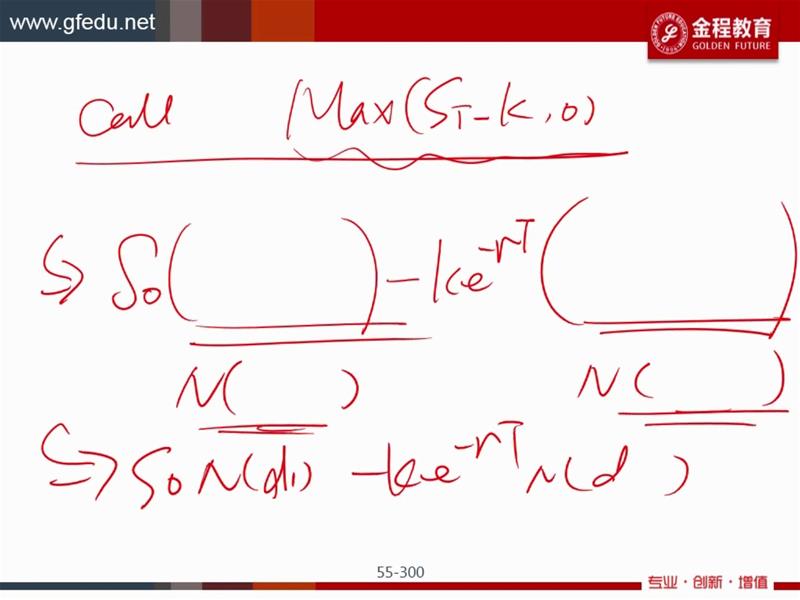 www.gfedu.net
金程教育
GOLDEN FUTURE
Call Max(S_T - K, 0)
⇒ S_0( ) - Ke^{-rT}( )
N( ) N( )
⇒ S_0 N(d_1) - Ke^{-rT} N(d )
55-300
专业·创新·增值